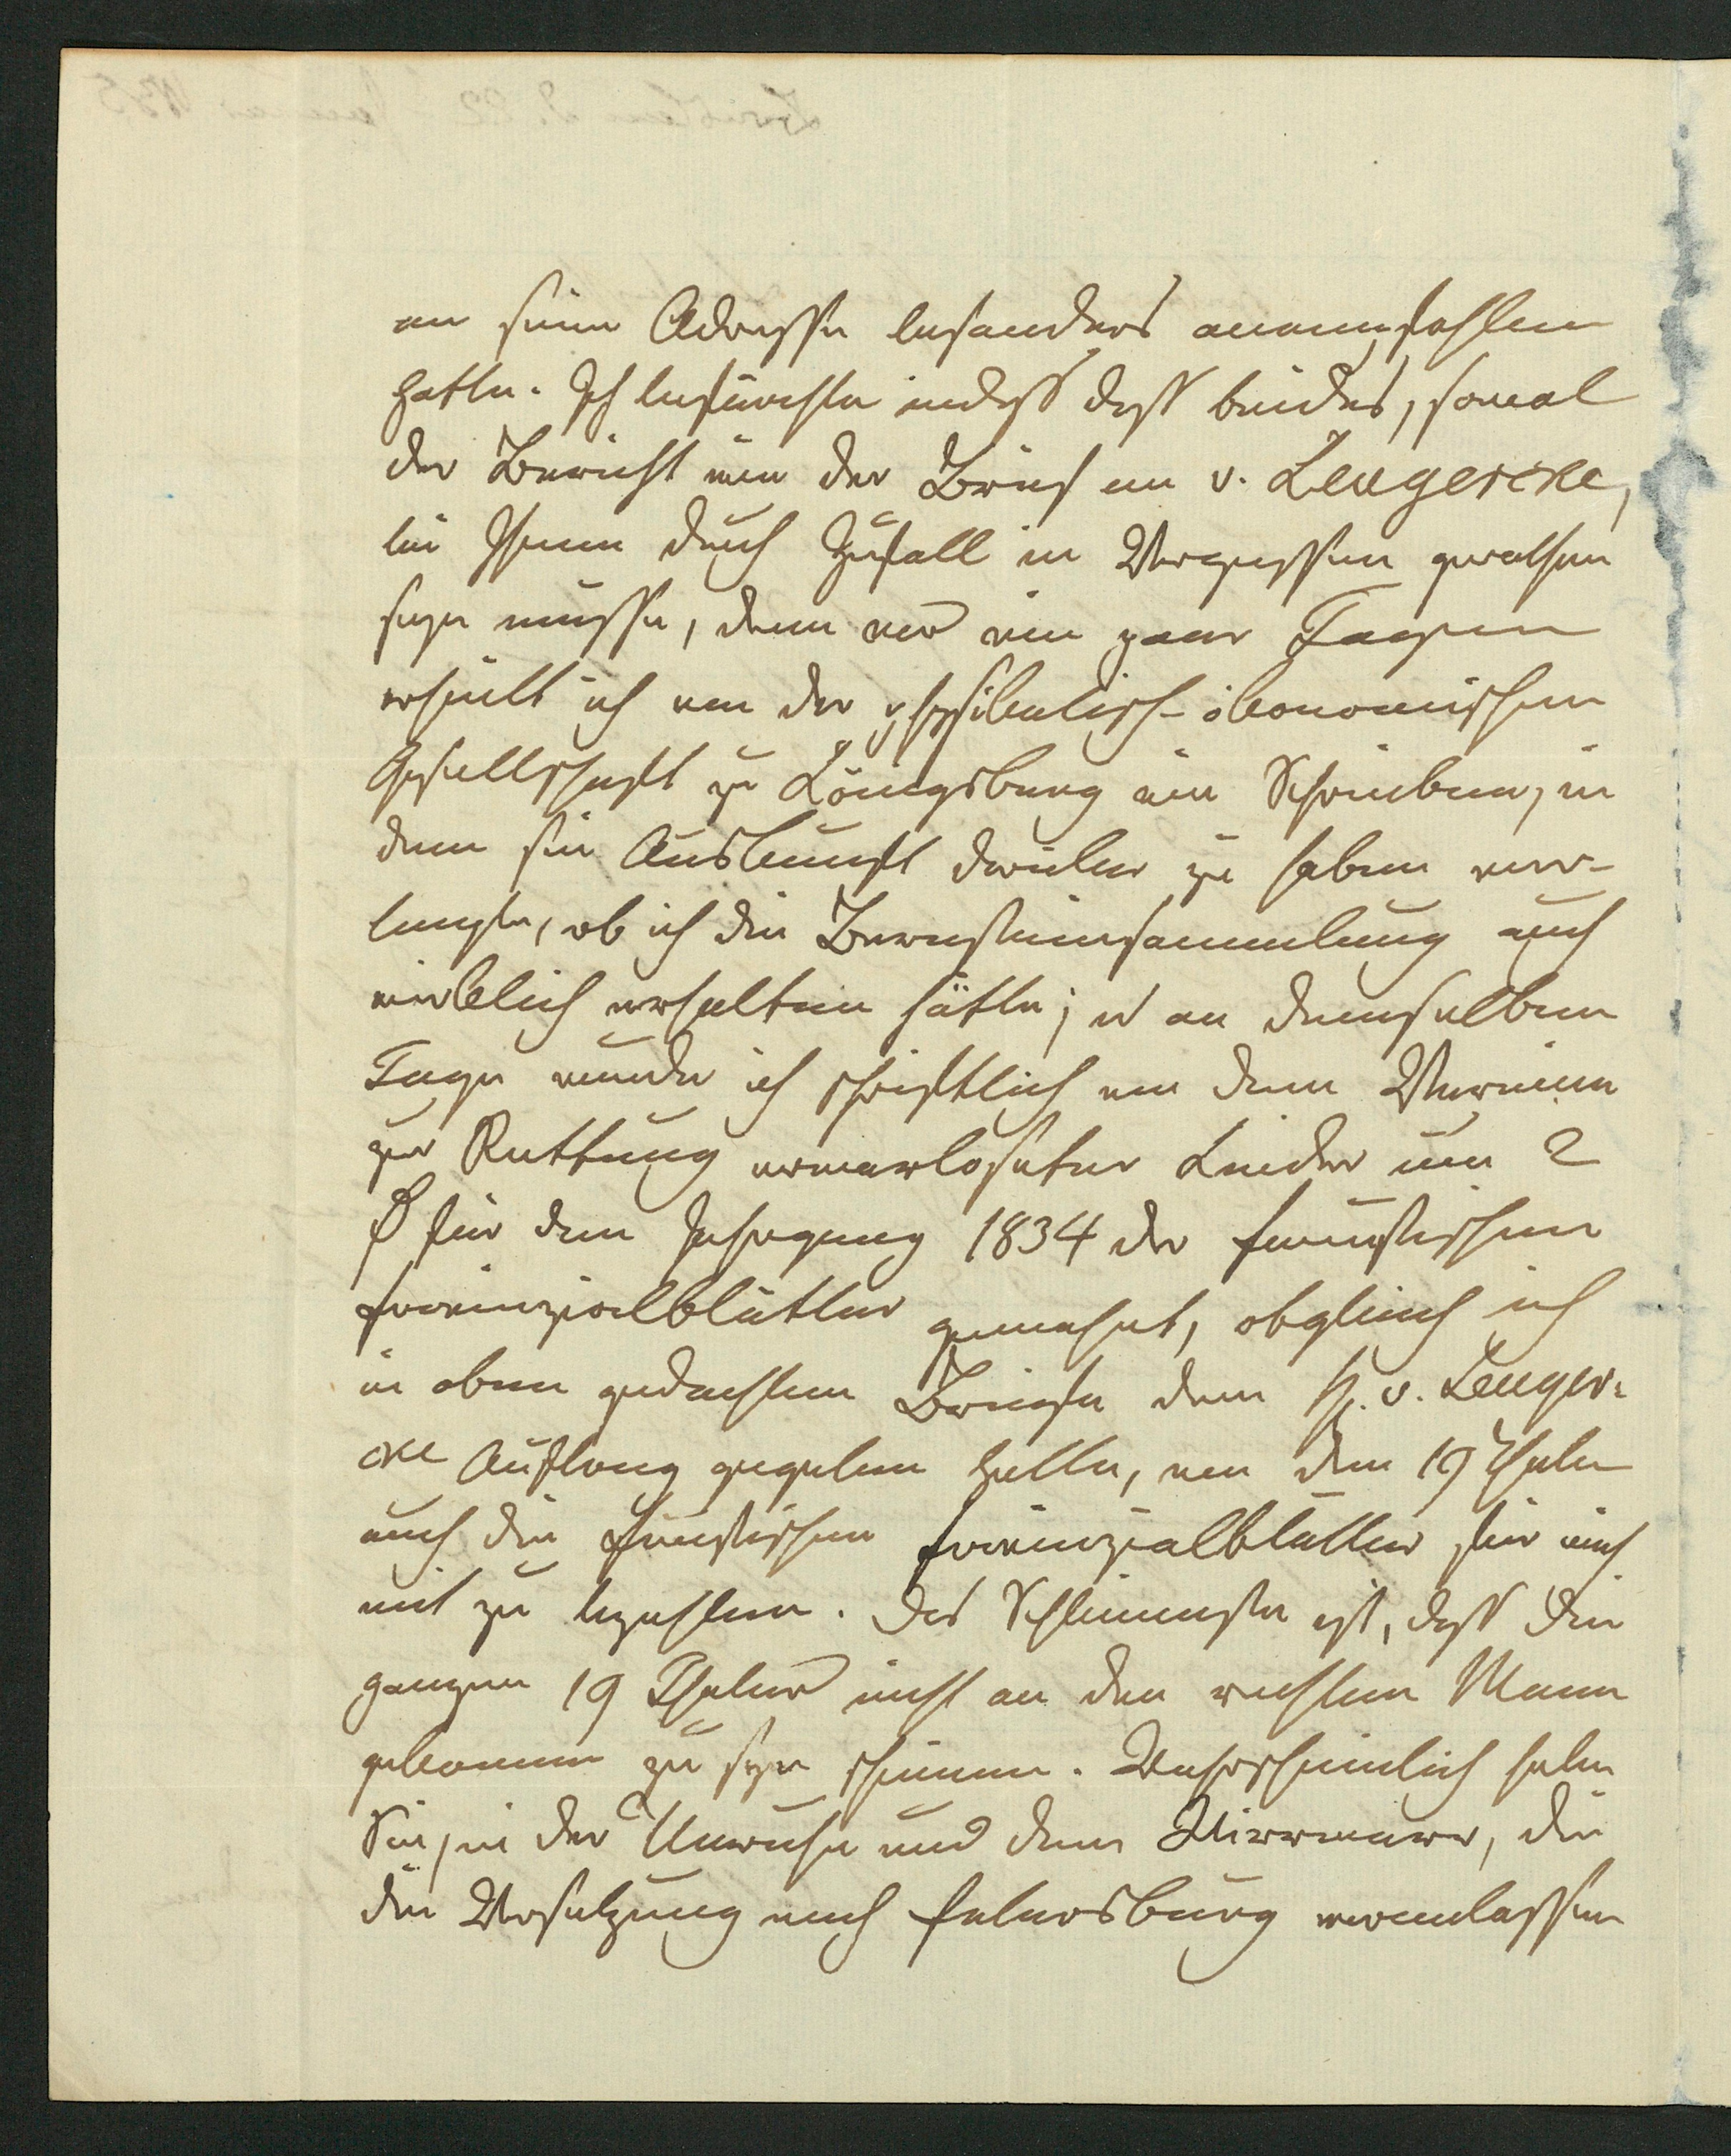 an seine Adresse besonders anempfohlen
hatte. Ich befürchte indeß daß beides, sowol
der Bericht wie der Brief an v. Lengercke,
bei Ihnen durch Zufall in Vergessen gerathen
seyn müsse, denn vor ein paar Tagen
erhielt ich von der physikalisch-ökonomischen
Gesellschaft zu Königsberg ein Schreiben, in
dem sie Auskunft darüber zu haben ver-
langte, ob ich die Bernsteinsammlung auch
wirklich erhalten hätte; u an demselben
Tage wurde ich schriftlich von dem Vereine
zur Rettung verwarloseter Kinder um 2
für den Jahrgang 1834 der Preussischen
Provinzialblätter gemahnt, obgleich ich
in oben gedachtem Briefe dem H. v. Lenger-
cke Auftrag gegeben hatte, von den 19 Thaler
auch die Preussischen Provinzialblätter für mich
mit zu bezahlen. Das Schlimmste ist, daß die
ganzen 19 Thaler nicht an den rechten Mann
gekommen zu seyn scheinen. Wahrscheinlich haben
Sie, in der Unruhe und dem Wirrwarr, die
die Versetzung nach Petersburg veranlassen